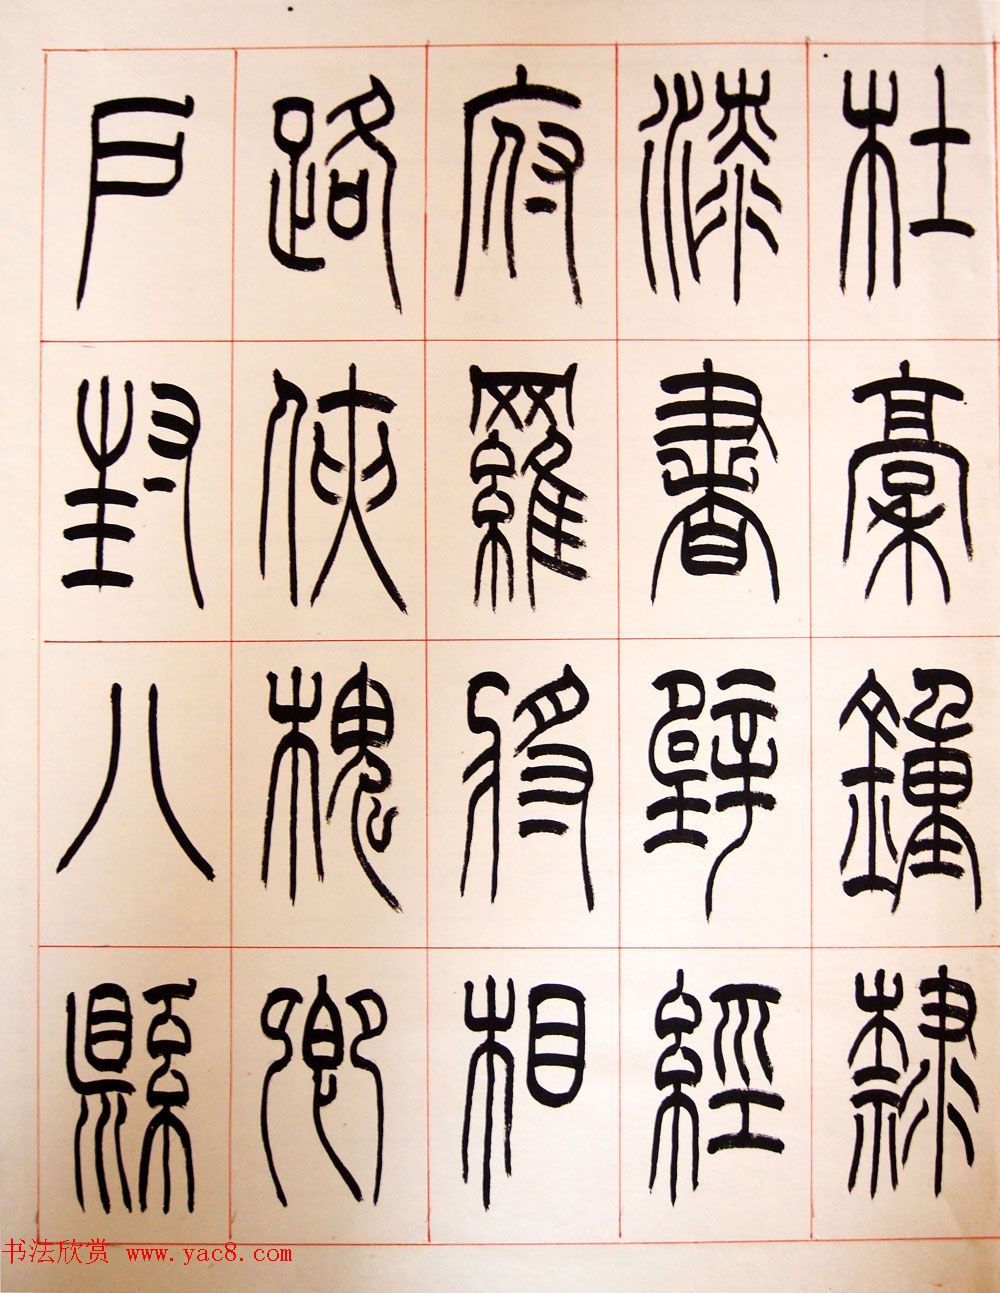 杜稾鍾隸
漆書壁經
府羅將相
路俠槐卿
戶封八縣
书法欣赏 www.yac8.com